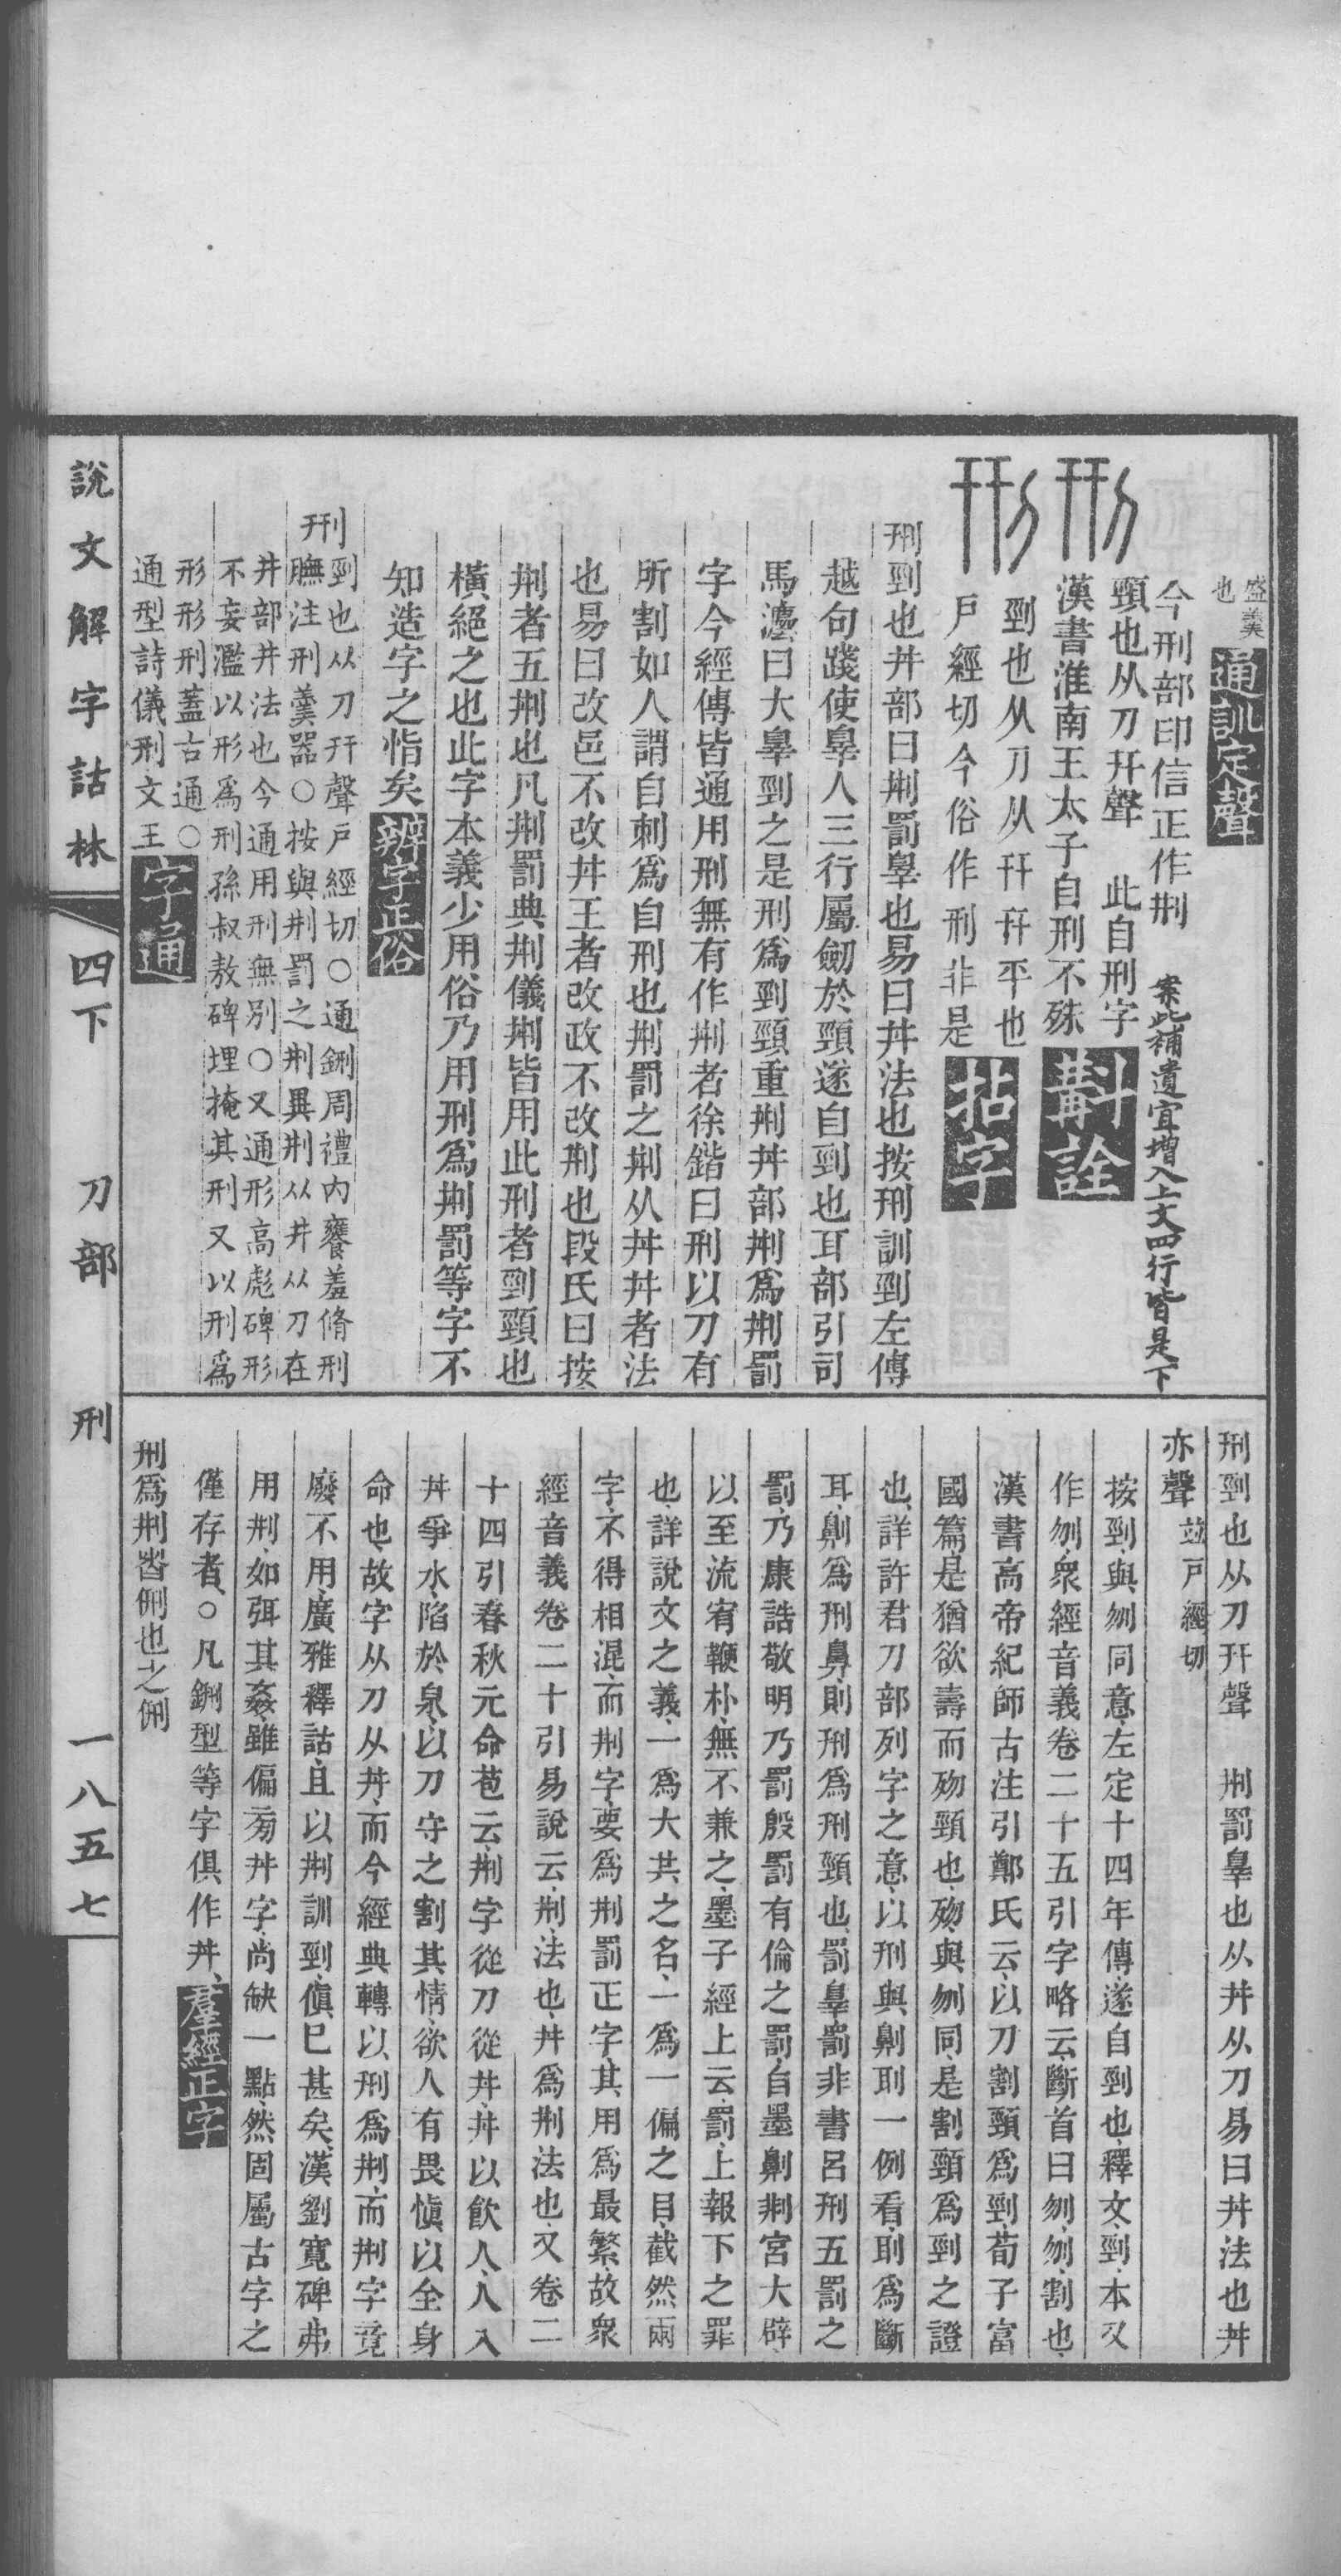 盛羹
也
通訓定聲
今刑部印信正作㓝　案此補遺宜增入上文四行皆是下
頸也从刀幵聲　此自刑字
漢書淮南王太子自刑不殊
斠詮
剄也从刀从幵幵平也
戶經切今俗作刑非是
拈字
刑剄也丼部曰㓝罰辠也易曰丼法也按刑訓剄左傳
越句踐使辠人三行屬劒於頸遂自剄也耳部引司
馬灋曰大辠剄之是刑爲剄頸重㓝丼部㓝爲㓝罰
字今經傳皆通用刑無有作㓝者徐鍇曰刑以刀有
所割如人謂自刺爲自刑也㓝罰之㓝从丼丼者法
也易曰改邑不改丼王者改政不改㓝也段氏曰按
㓝者五㓝也凡㓝罰典㓝儀㓝皆用此刑者剄頸也
橫絕之也此字本義少用俗乃用刑爲㓝罰等字不
知造字之恉矣
辨字正俗
刑
剄也从刀幵聲戶經切○通鉶周禮內饔羞脩刑
膴注刑羹器○按與㓝罰之㓝異㓝从井从刀在
井部井法也今通用刑無別○又通形高彪碑形
不妄濫以形爲刑孫叔敖碑埋掩其刑又以刑爲
形形刑蓋古通○
通型詩儀刑文王
字通
刑剄也从刀幵聲　㓝罰辠也从丼从刀易曰丼法也丼
亦聲　竝戶經切
按剄與刎同意左定十四年傳遂自剄也釋文剄本又
作刎衆經音義卷二十五引字略云斷首曰刎刎割也
漢書高帝紀師古注引鄭氏云以刀割頸爲剄荀子富
國篇是猶欲壽而歾頸也歾與刎同是割頸爲剄之證
也詳許君刀部列字之意以刑與劓刵一例看刵爲斷
耳劓爲刑鼻則刑爲刑頸也罰辠罰非書呂刑五罰之
罰乃康誥敬明乃罰殷罰有倫之罰自墨劓剕宮大辟
以至流宥鞭朴無不兼之墨子經上云罰上報下之罪
也詳說文之義一爲大共之名一爲一偏之目截然兩
字不得相混而㓝字要爲㓝罰正字其用爲最繁故衆
經音義卷二十引易說云㓝法也丼爲㓝法也又卷二
十四引春秋元命苞云㓝字從刀從丼丼以飲人人入
丼爭水陷於泉以刀守之割其情欲人有畏愼以全身
命也故字从刀从丼而今經典轉以刑爲㓝而㓝字竟
廢不用廣雅釋詁且以㓝訓剄傎已甚矣漢劉寬碑弗
用㓝如弭其姦雖偏旁丼字尚缺一點然固屬古字之
僅存者○凡鉶型等字俱作丼
羣經正字
刑爲㓝皆侀也之侀
說文解字詁林　四下　刀部　刑　一八五七